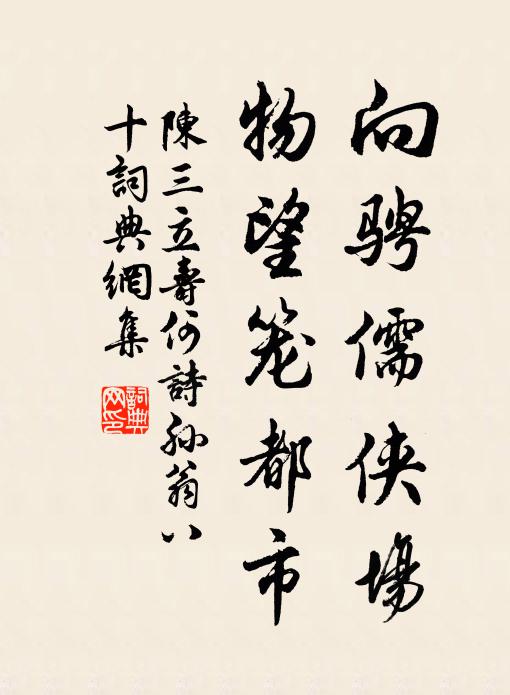 向骋儒侠場
物望笼都市
陳三立壽何詩孙翁八
十詞典網集
詞典
网印